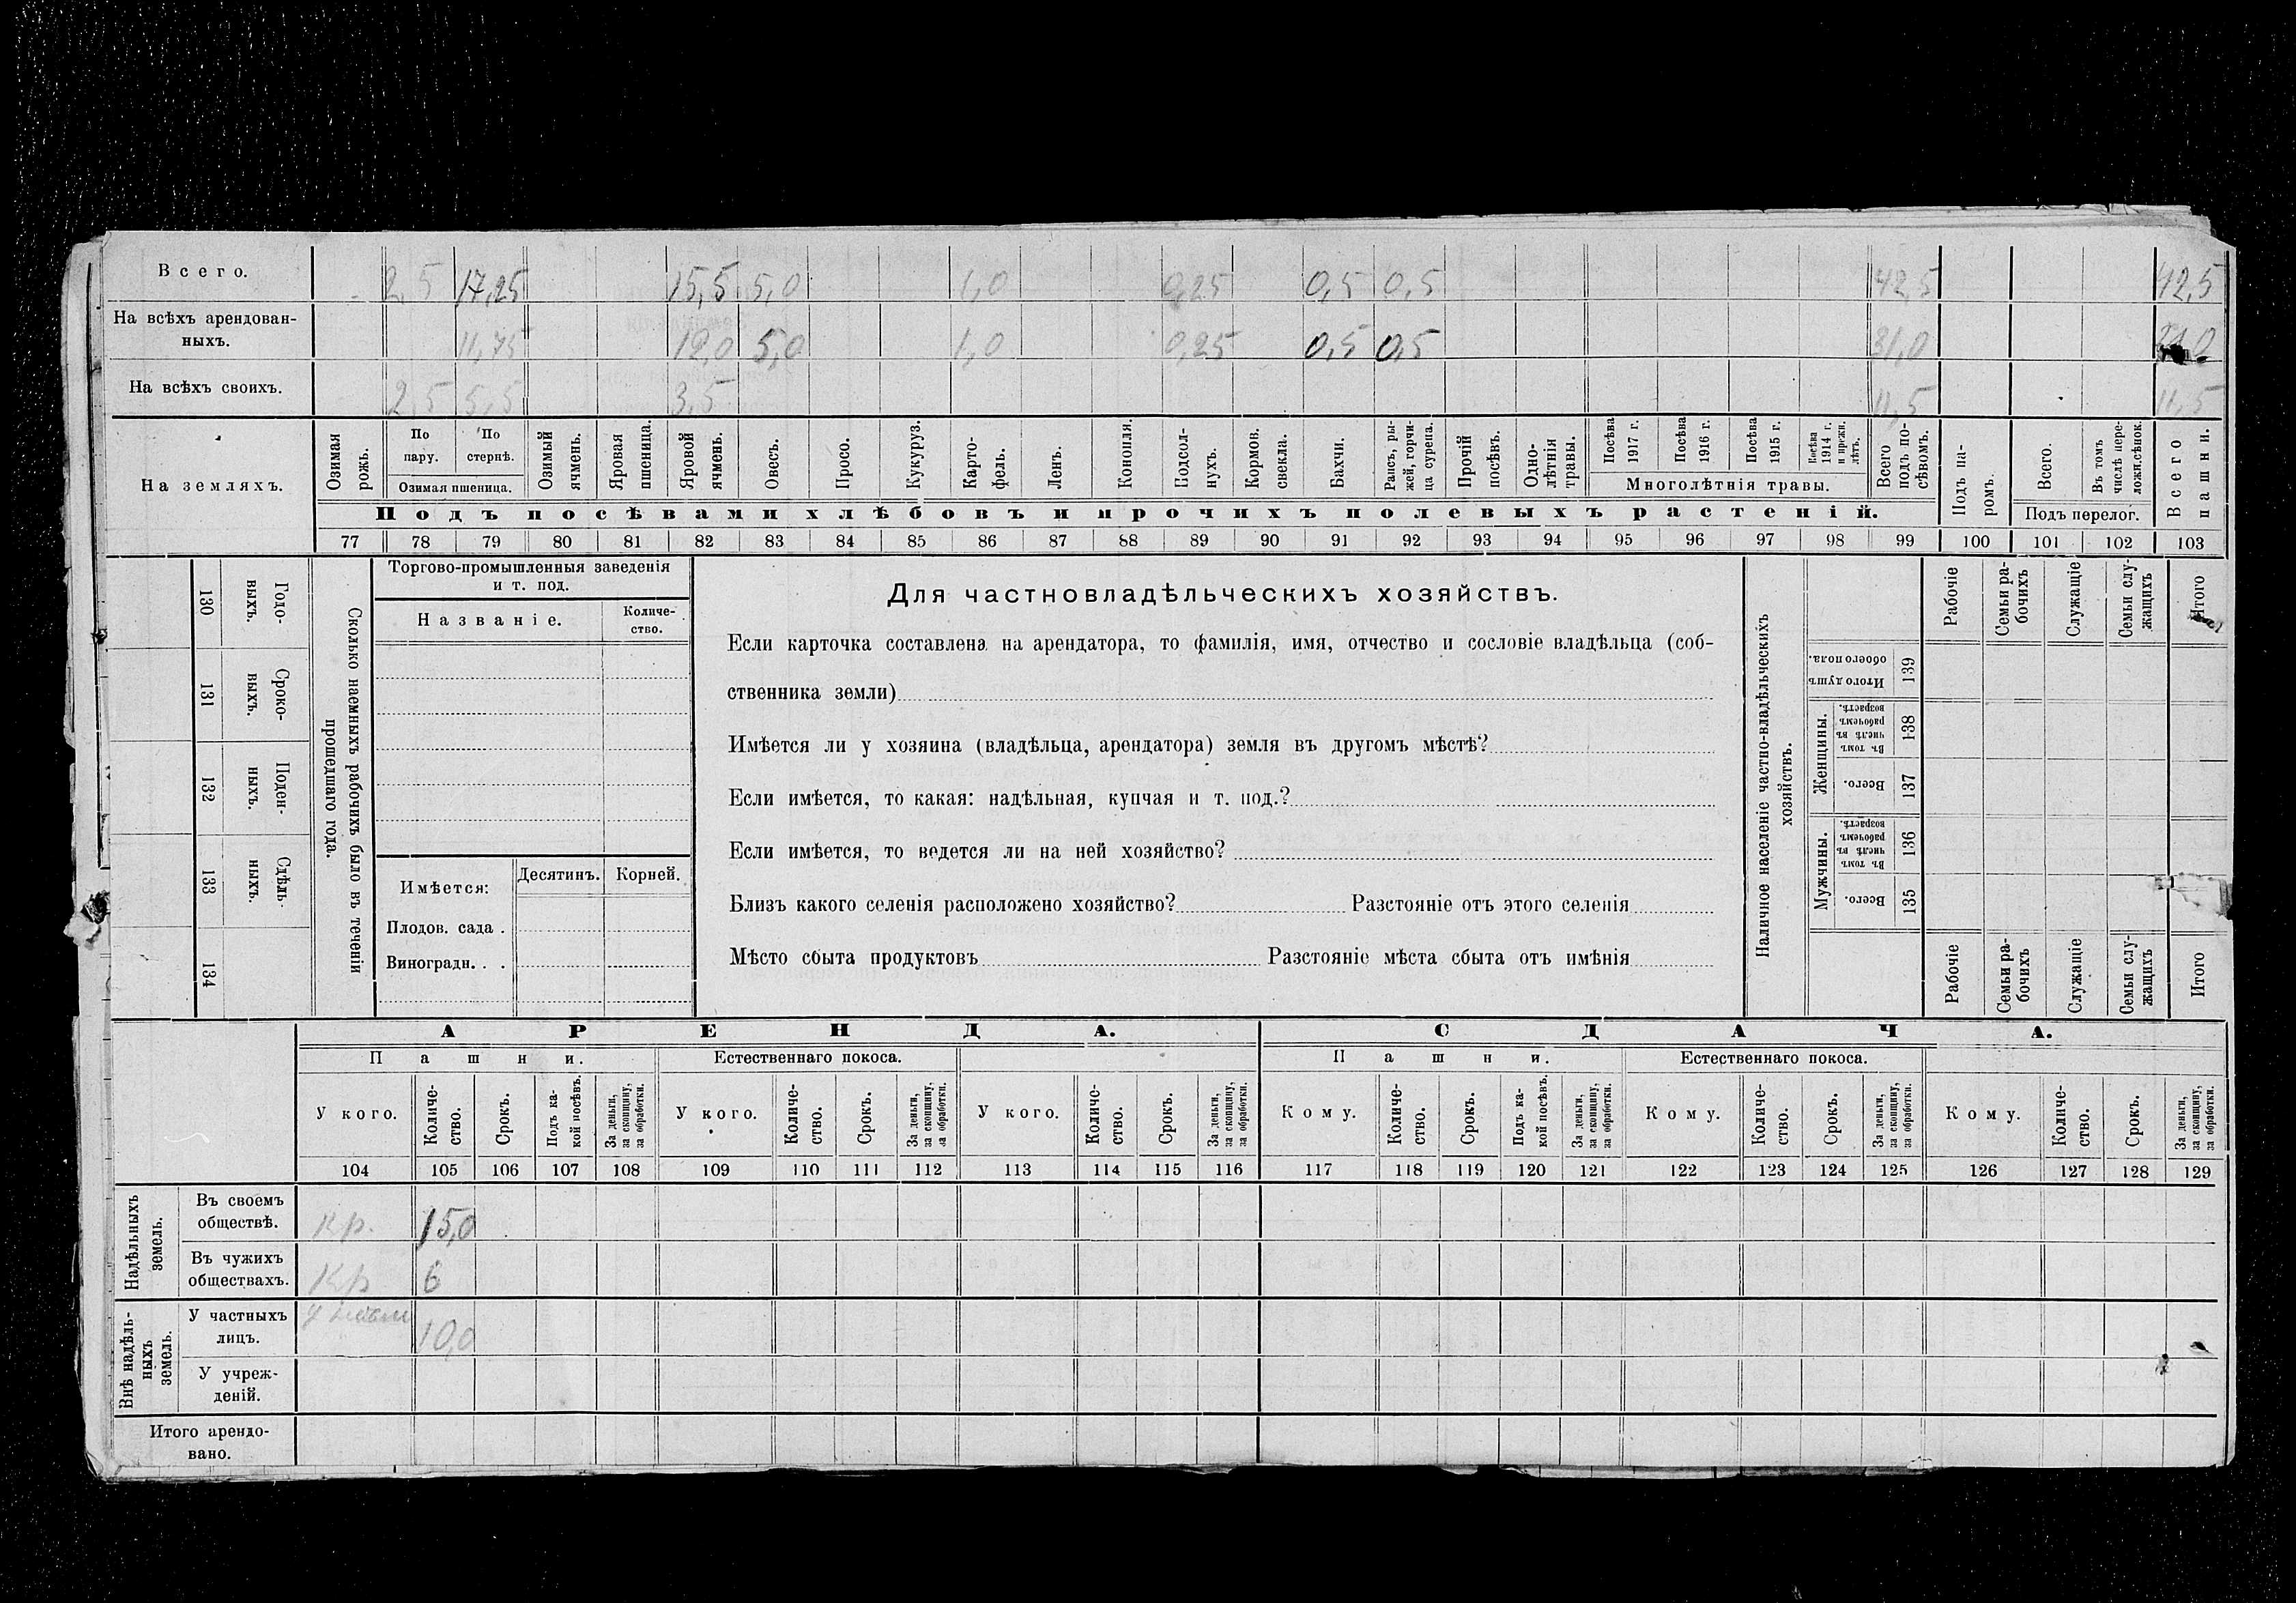 Всего. 2,5 17,25 15,5 5,0 1,0 0,25 0,5 0,5 42,5 42,5
На всѣхъ арендован-
ныхъ. 11,75 12,0 5,0 1,0 0,25 0,5 0,5 31,0
На всѣхъ своихъ. 2,5 5,5 3,5 11,5 11,5
На земляхъ.
Озимая
рожь.
По
пару.
По
стернѣ.
Озимая пшеница.
Озимый
ячмень.
Яровая
пшеница.
Яровой
ячмень.
Овесъ.
Просо.
Кукуруз.
Карто-
фель.
Ленъ.
Конопля.
Подсол-
нухъ.
Кормов.
свекла.
Бахчи.
Рапсъ, ры-
жей, горчи-
ца сурепа.
Прочій
посѣвъ.
Одно-
лѣтнія
травы.
Посѣва
1917 г.
Посѣва
1916 г.
Посѣва
1915 г.
Посѣва
1914 г.
и прежн.
лѣтъ.
Многолѣтнія травы.
Всего
подъ по-
сѣвомъ.
Подъ па-
ромъ.
Всего.
Въ томъ
числѣ пере-
ложн.сѣнок.
Подъ перелог.
Всего
пашни.
Подъ посѣвами хлѣбовъ и прочихъ полевыхъ растеній.
77 78 79 80 81 82 83 84 85 86 87 88 89 90 91 92 93 94 95 96 97 98 99 100 101 102 103
130 Годо-
выхъ.
131 Сроко-
выхъ.
132 Поден-
ныхъ.
133 Сдѣль-
ныхъ.
134
Сколько наемныхъ рабочихъ было въ теченіи
прошедшаго года.
Торгово-промышленныя заведенія
и т. под.
Названіе.
Количе-
ство.
Имѣется:
Десятинъ. Корней.
Плодов. сада .
Виноградн. . .
Для частновладѣльческихъ хозяйствъ.
Если карточка составлена на арендатора, то фамилія, имя, отчество и сословіе владѣльца (соб-
ственника земли)
Имѣется ли у хозяина (владѣльца, арендатора) земля въ другомъ мѣстѣ?
Если имѣется, то какая: надѣльная, купчая и т. под.?
Если имѣется, то ведется ли на ней хозяйство?
Близъ какого селенія расположено хозяйство? Разстояніе отъ этого селенія
Мѣсто сбыта продуктовъ Разстояніе мѣста сбыта отъ имѣнія
Наличное населеніе частно-владѣльческихъ
хозяйствъ.
Рабочіе
Семьи ра-
бочихъ
Служащіе
Семьи слу-
жащихъ
Итого
Итого душъ
обоего пола.
139
Женщины.
Въ томъ
числѣ въ
рабочемъ
возрастѣ.
138
Всего.
137
Мужчины.
Въ томъ
числѣ въ
рабочемъ
возрастѣ.
136
Всего.
135
Рабочіе
Семьи ра-
бочихъ
Служащіе
Семьи слу-
жащихъ
Итого
АРЕНДА. СДАЧА.
Пашни. Естественнаго покоса. Пашни. Естественнаго покоса.
У кого.
Количе-
ство.
Срокъ.
Подъ ка-
кой посѣвъ.
За деньги,
за скопщину,
за обработки.
У кого.
Количе-
ство.
Срокъ.
За деньги,
за скопщину,
за обработки.
У кого.
Количе-
ство.
Срокъ.
За деньги,
за скопщину,
за обработки.
Кому.
Количе-
ство.
Срокъ.
Подъ ка-
кой посѣвъ.
За деньги,
за скопщину,
за обработки.
Кому.
Количе-
ство.
Срокъ.
За деньги,
за скопщину,
за обработки.
Кому.
Количе-
ство.
Срокъ.
За деньги,
за скопщину,
за обработки.
104 105 106 107 108 109 110 111 112 113 114 115 116 117 118 119 120 121 122 123 124 125 126 127 128 129
Надѣльныхъ
земель.
Въ своемъ
обществѣ. кр. 15,0
Въ чужихъ
обществахъ. Кр 6
Внѣ надѣль-
ныхъ
земель.
У частныхъ
лицъ. 10,0
У учреж-
деній.
Итого арендо-
вано.